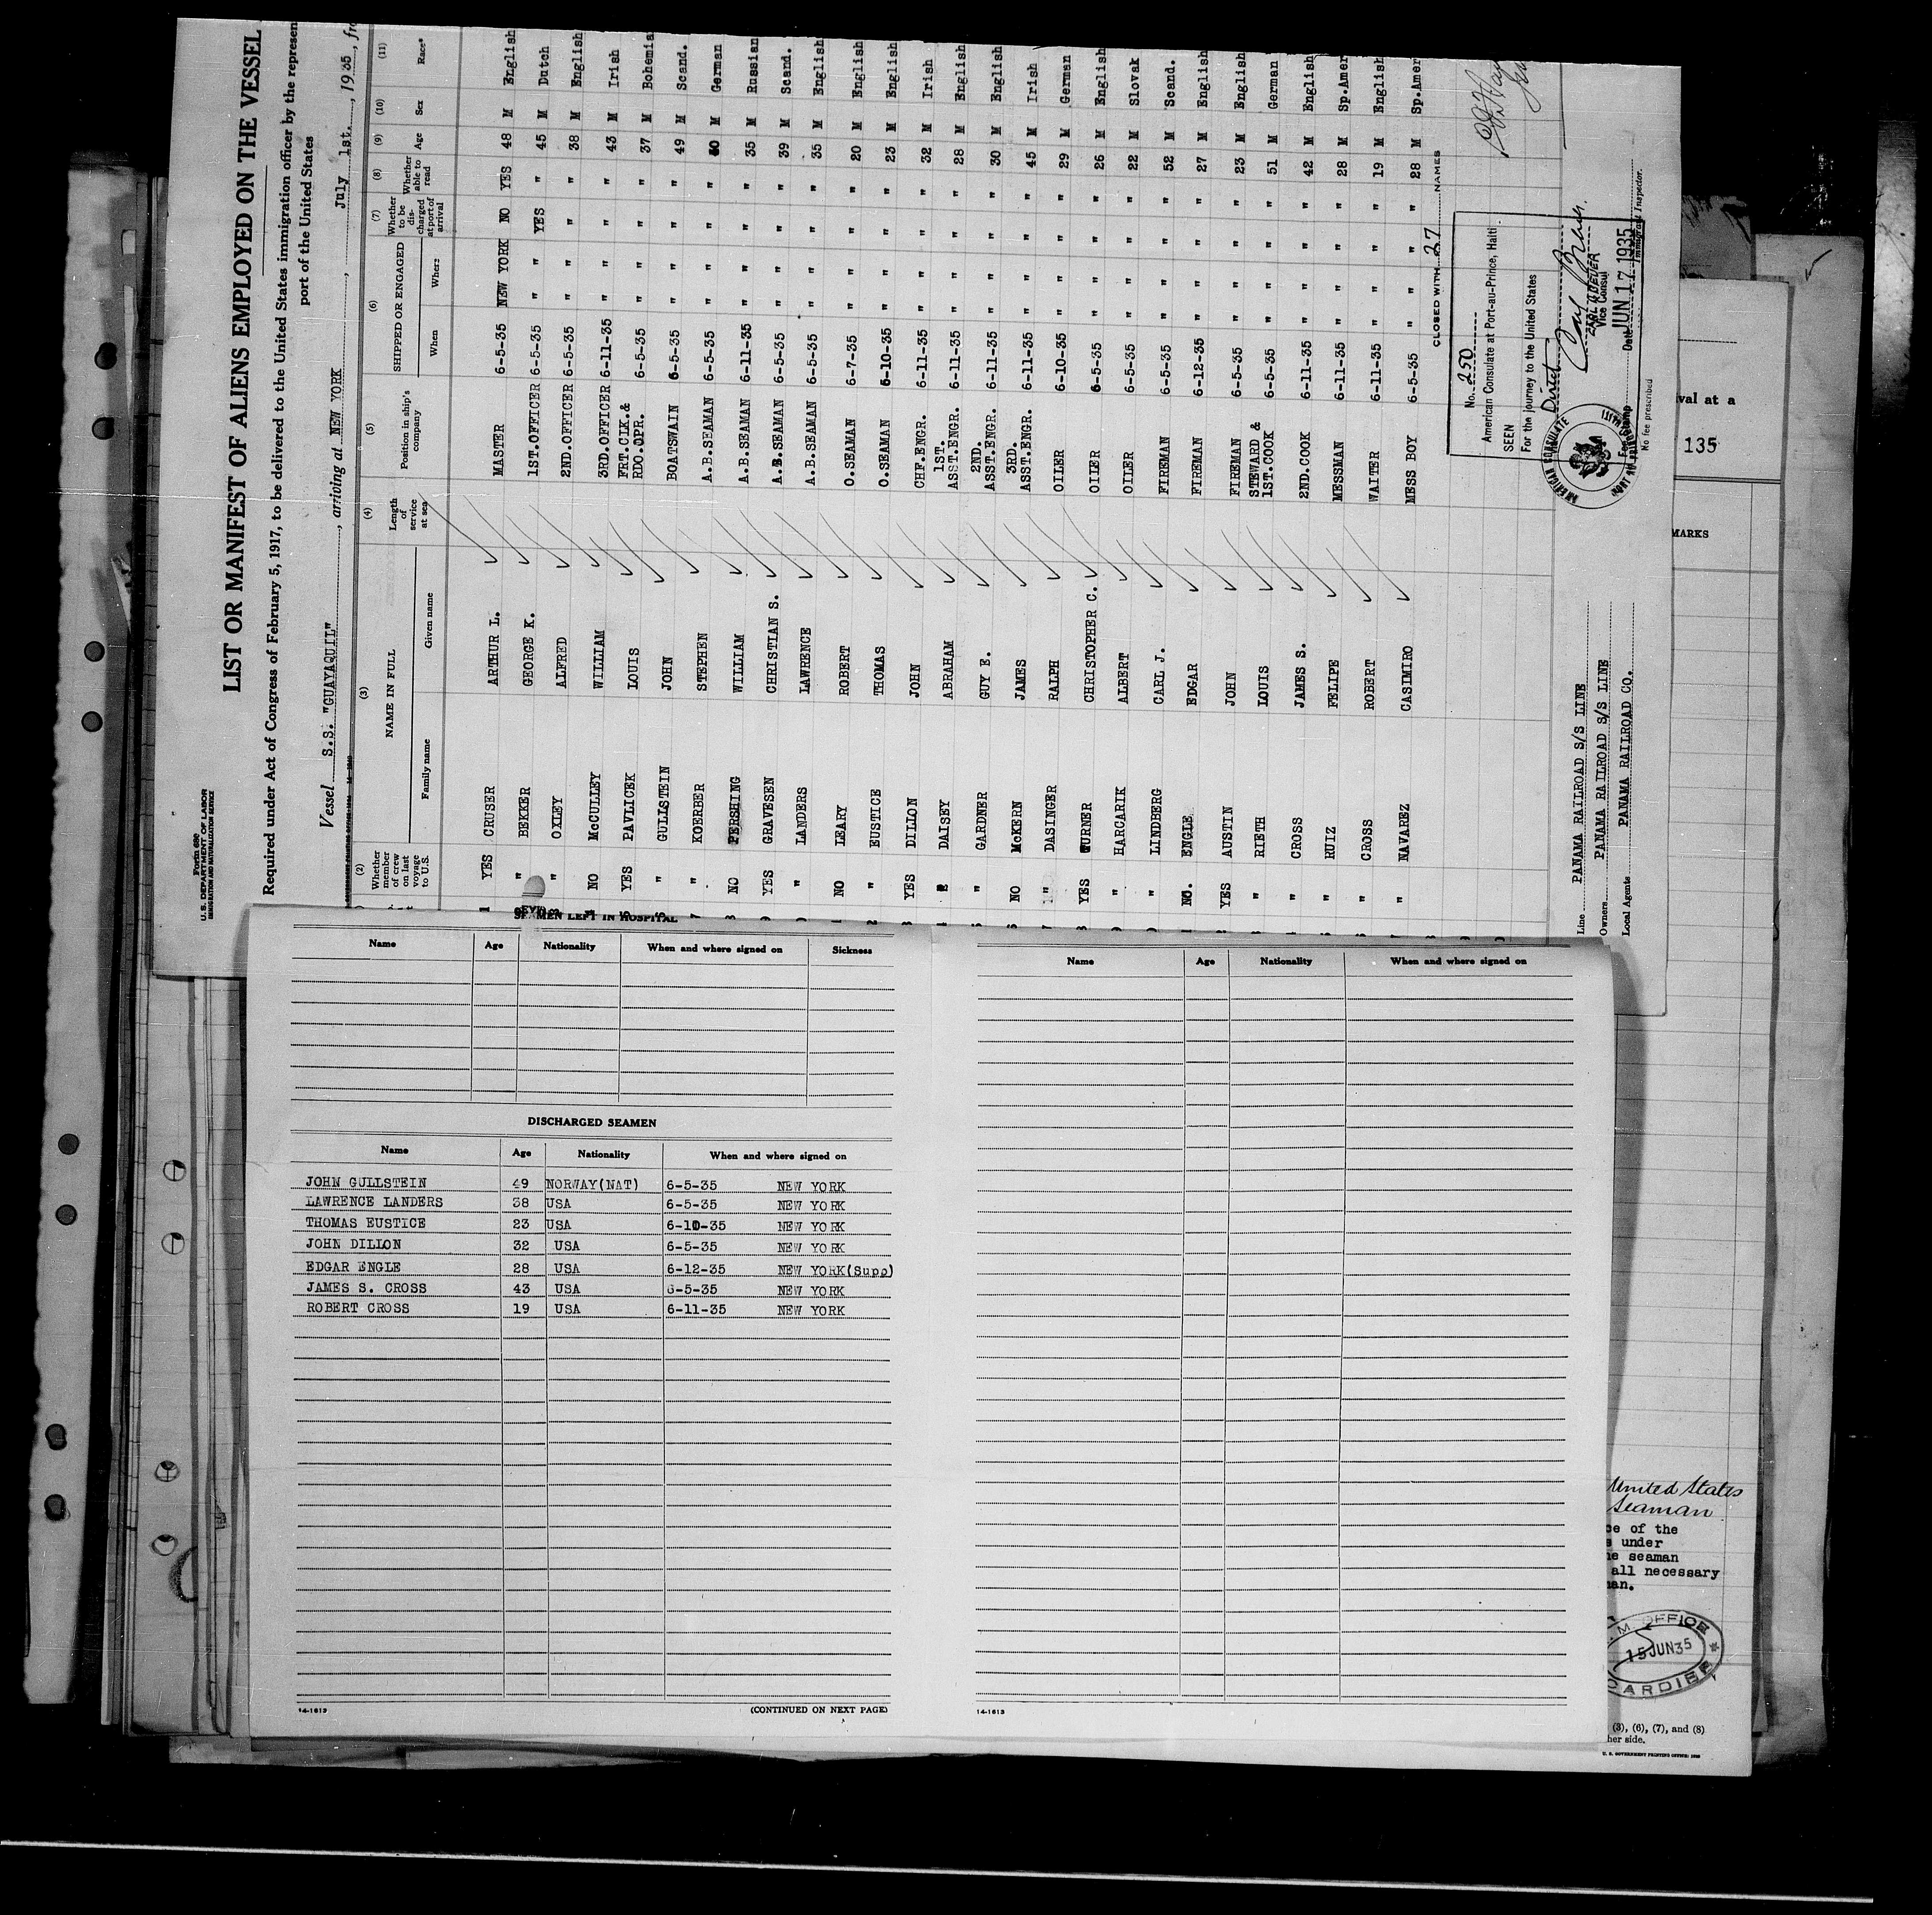 Form 689
U. S. DEPARTMENT OF LABOR
IMMIGRATION AND NATURALIZATION SERVICE
LIST OR MANIFEST OF ALIENS EMPLOYED ON THE VESSEL
Required under Act of Congress of February 5, 1917, to be delivered to the United States immigration officer by the represen
port of the United States
Vessel S.S. "GUAYAQUIL", arriving at NEW YORK, July 1st., 1935, fro
(2) (3) (4) (5) (6) (7) (8) (9) (10) (11)
Whether member of crew on last voyage to U.S. NAME IN FULL Family name Given name Length of service at sea Position in ship's company SHIPPED OR ENGAGED When Where Whether to be dis-charged at port of arrival Whether able to read Age Sex Race*
YES CRUSER ARTHUR L. MASTER 6-5-35 NEW YORK NO YES 48 M English
" BEKKER GEORGE K. 1ST.OFFICER 6-5-35 " " YES " 45 M Dutch
" OXLEY ALFRED 2ND.OFFICER 6-5-35 " " " " 38 M English
NO McCULLEY WILLIAM 3RD.OFFICER 6-11-35 " " " " 43 M Irish
YES PAVLICEK LOUIS FRT.CLK.& RDO.OPR. 6-5-35 " " " " 37 M Bohemia
" GULLSTEIN JOHN BOATSWAIN 6-5-35 " " " " 49 M Scand.
" KOERBER STEPHEN A.B.SEAMAN 6-5-35 " " " " 30 M German
NO PERSHING WILLIAM A.B.SEAMAN 6-11-35 " " " " 35 M Russian
YES GRAVESEN CHRISTIAN S. A.B.SEAMAN 6-5-35 " " " " 39 M Scand.
" LANDERS LAWRENCE A.B.SEAMAN 6-5-35 " " " " 35 M English
NO LEARY ROBERT O.SEAMAN 6-7-35 " " " " 20 M English
" EUSTICE THOMAS O.SEAMAN 6-10-35 " " " " 23 M English
YES DILLON JOHN CHF.ENGR. 6-11-35 " " " " 32 M Irish
" DAISEY ABRAHAM 1ST. ASST.ENGR. 6-11-35 " " " " 28 M English
" GARDNER GUY E. 2ND. ASST.ENGR. 6-11-35 " " " " 30 M English
NO McKERN JAMES 3RD. ASST.ENGR. 6-11-35 " " " " 45 M Irish
" DASINGER RALPH OILER 6-10-35 " " " " 29 M German
YES TURNER CHRISTOPHER C. OILER 6-5-35 " " " " 26 M English
" HARCARIK ALBERT OILER 6-5-35 " " " " 22 M Slovak
" LINDBERG CARL J. FIREMAN 6-5-35 " " " " 52 M Scand.
NO. ENGLE EDGAR FIREMAN 6-12-35 " " " " 27 M English
YES AUSTIN JOHN FIREMAN 6-5-35 " " " " 23 M English
" RIETH LOUIS STEWARD & 1ST.COOK 6-5-35 " " " " 51 M German
" CROSS JAMES S. 2ND.COOK 6-11-35 " " " " 42 M English
" RUIZ FELIPE MESSMAN 6-11-35 " " " " 28 M Sp.Amer
" CROSS ROBERT WAITER 6-11-35 " " " " 19 M English
" NAVAREZ CASIMIRO MESS BOY 6-5-35 " " " " 28 M Sp.Amer
CLOSED WITH 27 NAMES
No. 250
American Consulate at Port-au-Prince, Haiti
SEEN
For the journey to the United States
Direct
Vice Consul
Date JUN 17 1935
Fee Stamp
No fee prescribed
AMERICAN CONSULATE
Immigrant Inspector.
Line PANAMA RAILROAD S/S LINE
Owners PANAMA RAILROAD S/S LINE
Local Agents PANAMA RAILROAD CO.
val at a
135
MARKS
SEAMEN LEFT IN HOSPITAL
Name Age Nationality When and where signed on Sickness
DISCHARGED SEAMEN
Name Age Nationality When and where signed on
JOHN GULLSTEIN 49 NORWAY(NAT) 6-5-35 NEW YORK
LAWRENCE LANDERS 38 USA 6-5-35 NEW YORK
THOMAS EUSTICE 23 USA 6-10-35 NEW YORK
JOHN DILLON 32 USA 6-5-35 NEW YORK
EDGAR ENGLE 28 USA 6-12-35 NEW YORK(Supp)
JAMES S. CROSS 43 USA 6-5-35 NEW YORK
ROBERT CROSS 19 USA 6-11-35 NEW YORK
14-1613 (CONTINUED ON NEXT PAGE)
Name Age Nationality When and where signed on
14-1613
United States
Seaman
ce of the
s under
he seaman
all necessary
man.
M. OFFICE
15 JUN 35
CARDIFF
(3), (6), (7), and (8)
her side.
U. S. GOVERNMENT PRINTING OFFICE: 1930